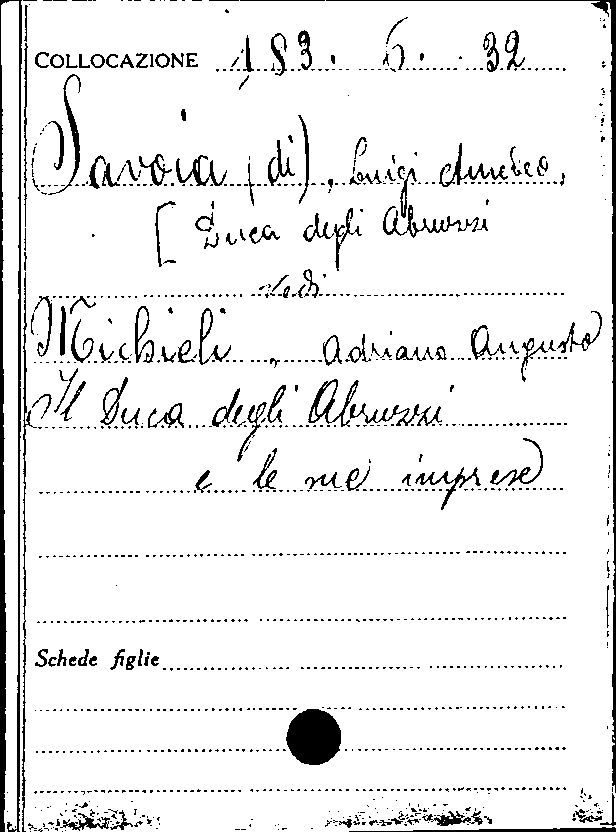 COLLOCAZIONE 183. 6. 32
Savoia (di), Luigi Amedeo,
[Duca degli Abruzzi
vedi
Michieli, Adriano Augusto
Il Duca degli Abruzzi
e le sue imprese
Schede figlie